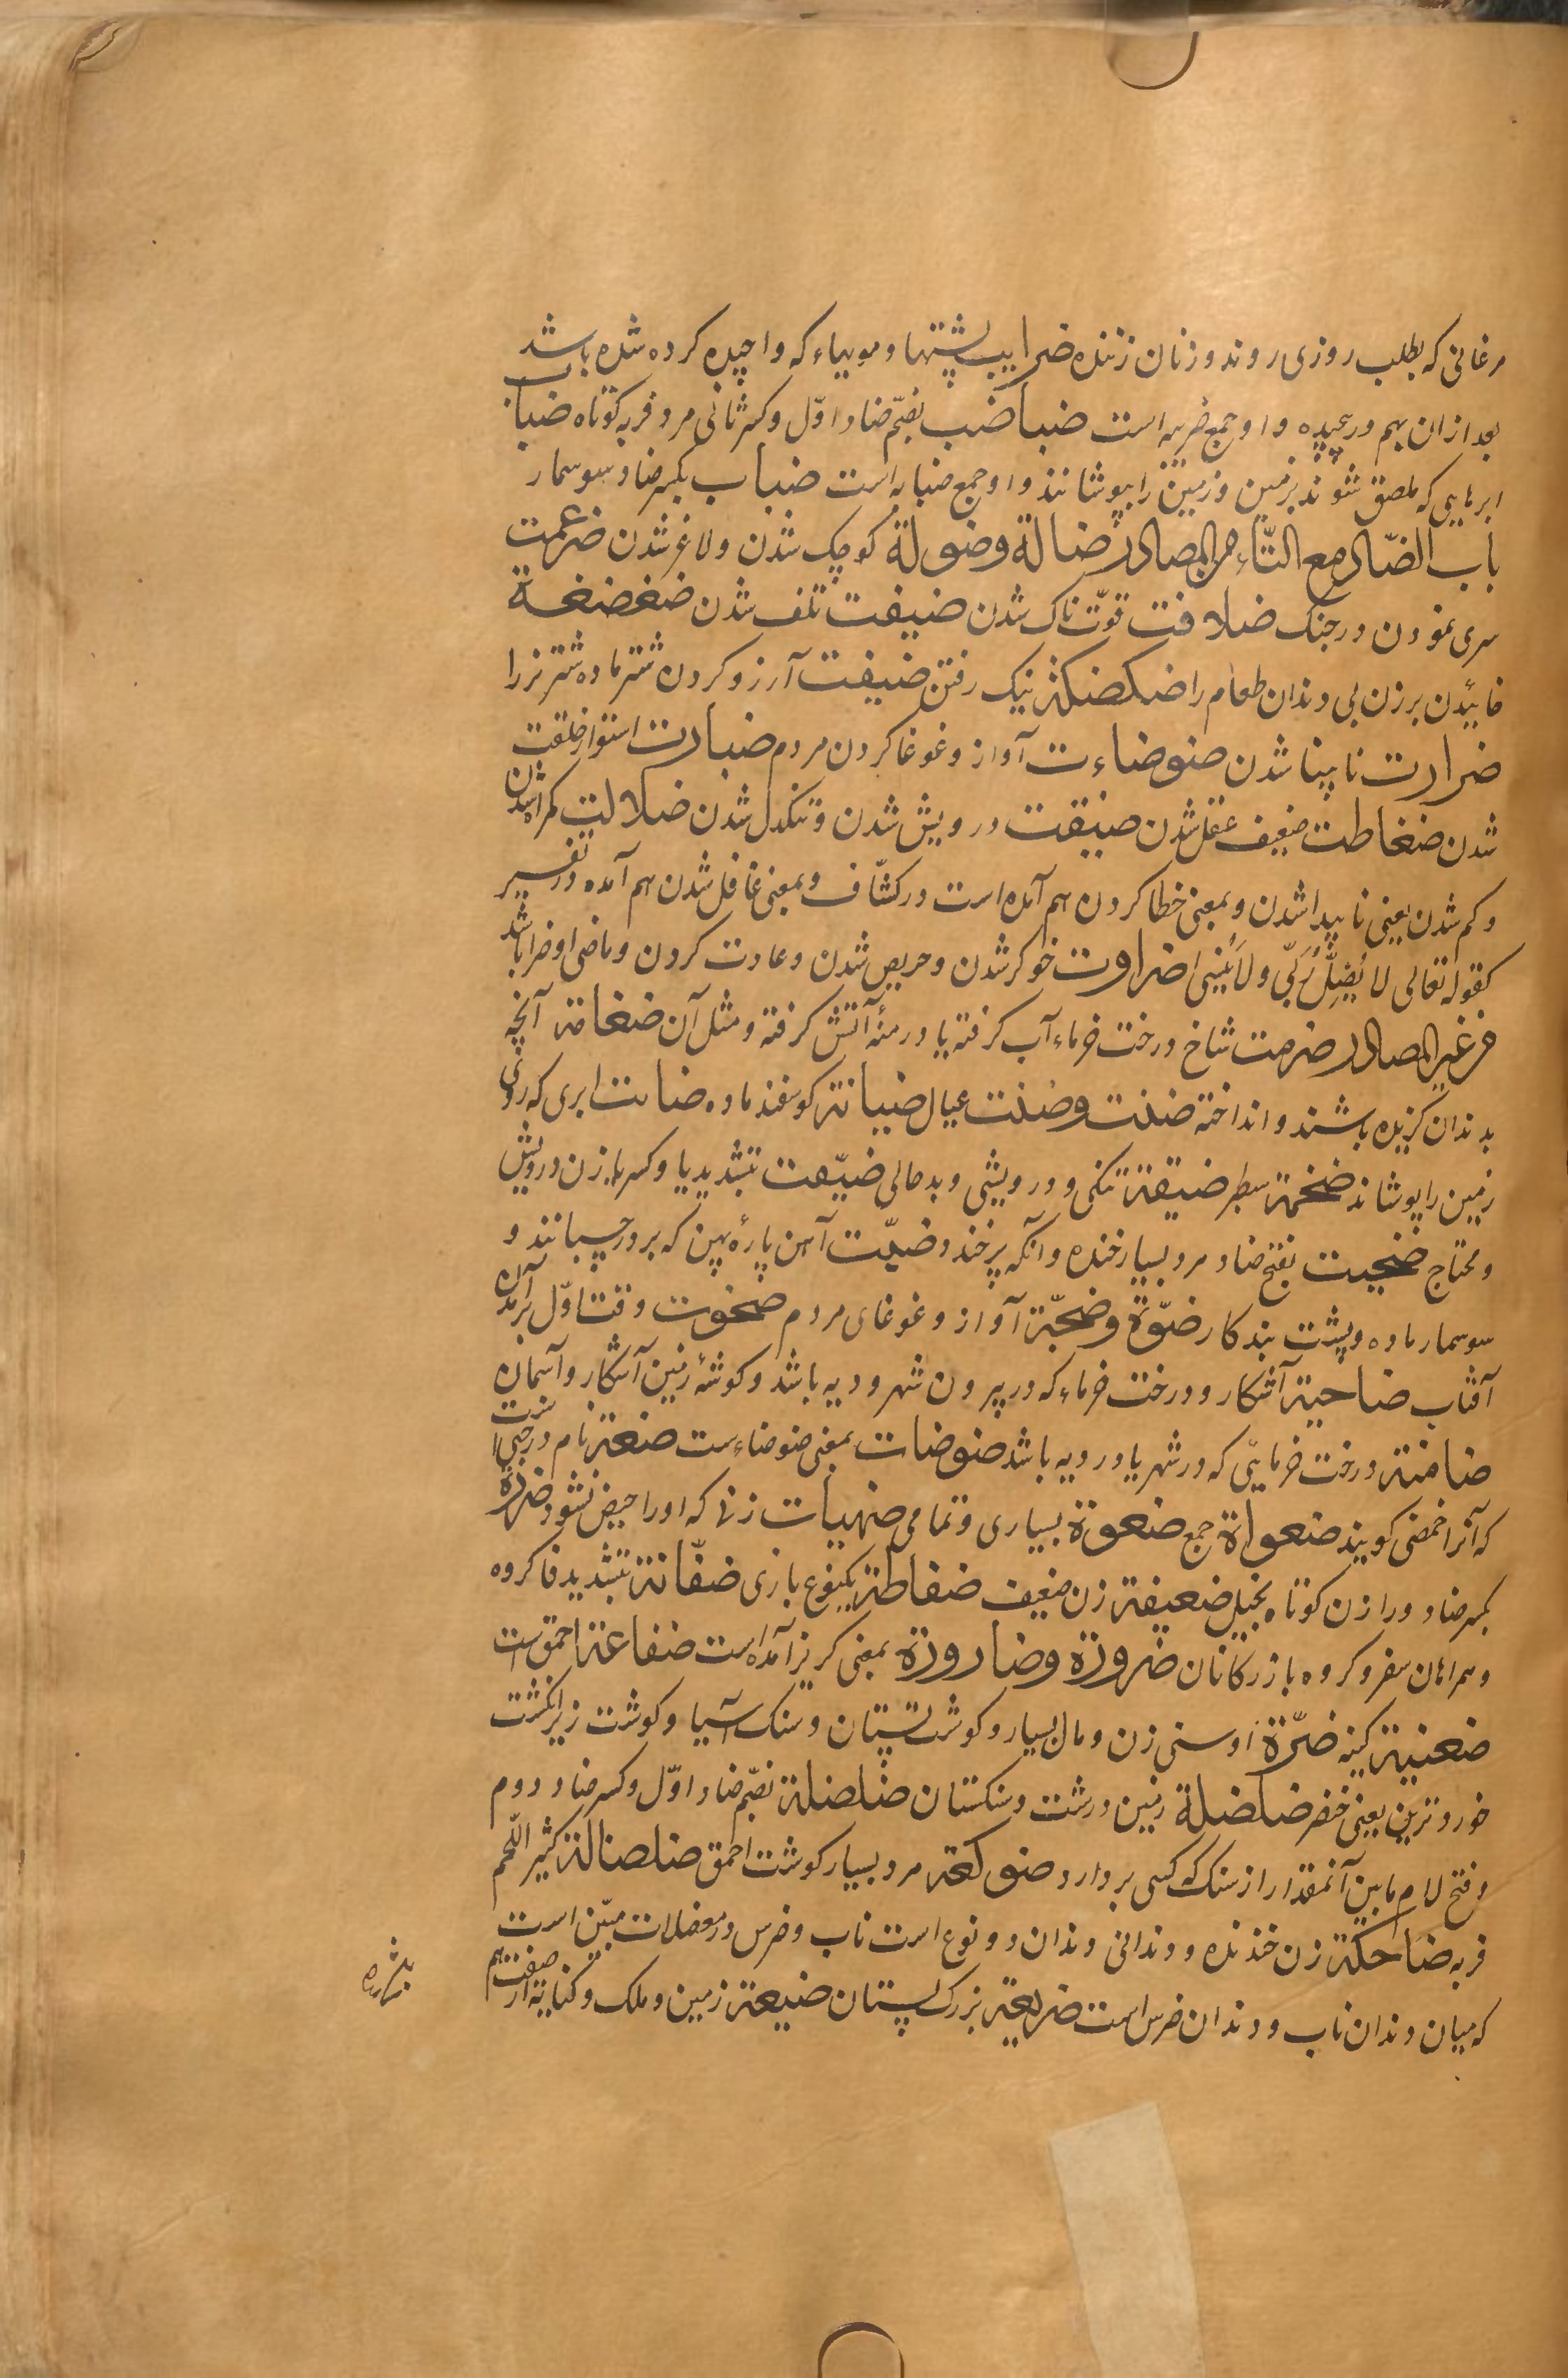 مرغانی که بطلب روزی روند و زنان زننده ضرایب پشتها و موییاء که واچیده کرده شده باشد
بعد ازان بهم درپیچیده و او جمع ضریبه است ضباضب بضمّ ضاد اوّل و کسر ثانی مرد فربه کوتاه ضباب
ابرهایی که ملصق شوند بزمین و زمین را بپوشانند و او جمع ضبابه است ضباب بکسر ضاد سوسمار
باب الضّاد مع التّاء من المصادر ضالة وضولة کوچک شدن و لاغر شدن ضرعمت
سری نمودن در جنک ضلافت قوّت ناک شدن ضیفت تلف شدن ضغضغة
خائیدن برزن بی دندان طعام را ضکضکة نیک رفتن ضیفت آرزو کردن شتر ماده شتر نر را
ضرارت نابینا شدن ضوضاءت آواز و غوغا کردن مردم ضبارت استوار خلقت
شدن ضغاطت ضعیف عقل شدن ضیقت درویش شدن و تنکدل شدن ضلالت کمراه شدن
و کم شدن یعنی ناپیدا شدن و بمعنی خطا کردن هم آمده است در کشّاف و بمعنی غافل شدن هم آمده در تفسیر
کقوله تعالی لا یُضِلُّ رَبّی ولا یَنسی ضراوت خوکر شدن و حریص شدن و عادت کردن و ماضی او ضرا باشد
من غیر المصادر ضرمت شاخ درخت خرماء آب کرفته یا درمنهٔ آتش کرفته و مثل آن ضغامة آنچه
بدندان کزیده باشند و انداخته ضنت وضنت عیال ضیانة کوسفند ماده ضابت ابری که روی
زمین را بپوشاند ضخمة سطبر ضیقة تنکی و درویشی و بدحالی ضیّقت بتشدید یا و کسر یا زن درویش
و محتاج ضحیت بفتح ضاد مرد بسیار خنده و آنکه پر خندد ضبّت آهن پارهٔ پهن که بر در چسبانند و
سوسمار ماده و پشت بند کار ضوّة وضجّة آواز و غوغای مردم ضحوت وقت اوّل برآمدن
آفتاب ضاحیة آشکار و درخت خرماء که در بیرون شهر و دیه باشد و کوشهٔ زمین آشکار و آسمان
ضامنة درخت خرمایی که در شهر یا در دیه باشد ضوضات بمعنی ضوضاءست ضعة نام درختی است
که آنرا حمضی کویند ضعواة جمع ضعوة بسیاری و تمامی ضهیات زنی که اورا حیض نشود ضرزة
بکسر ضاد و را زن کوتاه بخیل ضعیفة زن ضعیف ضفاطة یکنوع بازی ضفّانة بتشدید فا کروه
و همراهان سفر و کروه بازرکانان ضرورة وضارورة بمعنی کریز آمده است ضفاعة احمق است
ضعنیة کینه ضرّة اوسنی زن و مال بسیار و کوشت پستان و سنک آسیا و کوشت زیر انکشت
خورد ترین یعنی خنصر ضلضلة زمین درشت و سنکستان ضلضلة بضمّ ضاد اوّل و کسر ضاد دوم
و فتح لام مابین آنمقدار از سنک که کسی بردارد ضوکعة مرد بسیار کوشت احمق ضلصالة کثیر اللّحم
فربه ضاحکة زن خندنده و دندانی و دندان دو نوع است ناب و ضرس در معضلات مبیّن است
که میان دندان ناب و دندان ضرس است ضریعة بزرک پستان ضیعة زمین و ملک و کنایة از صفت هم